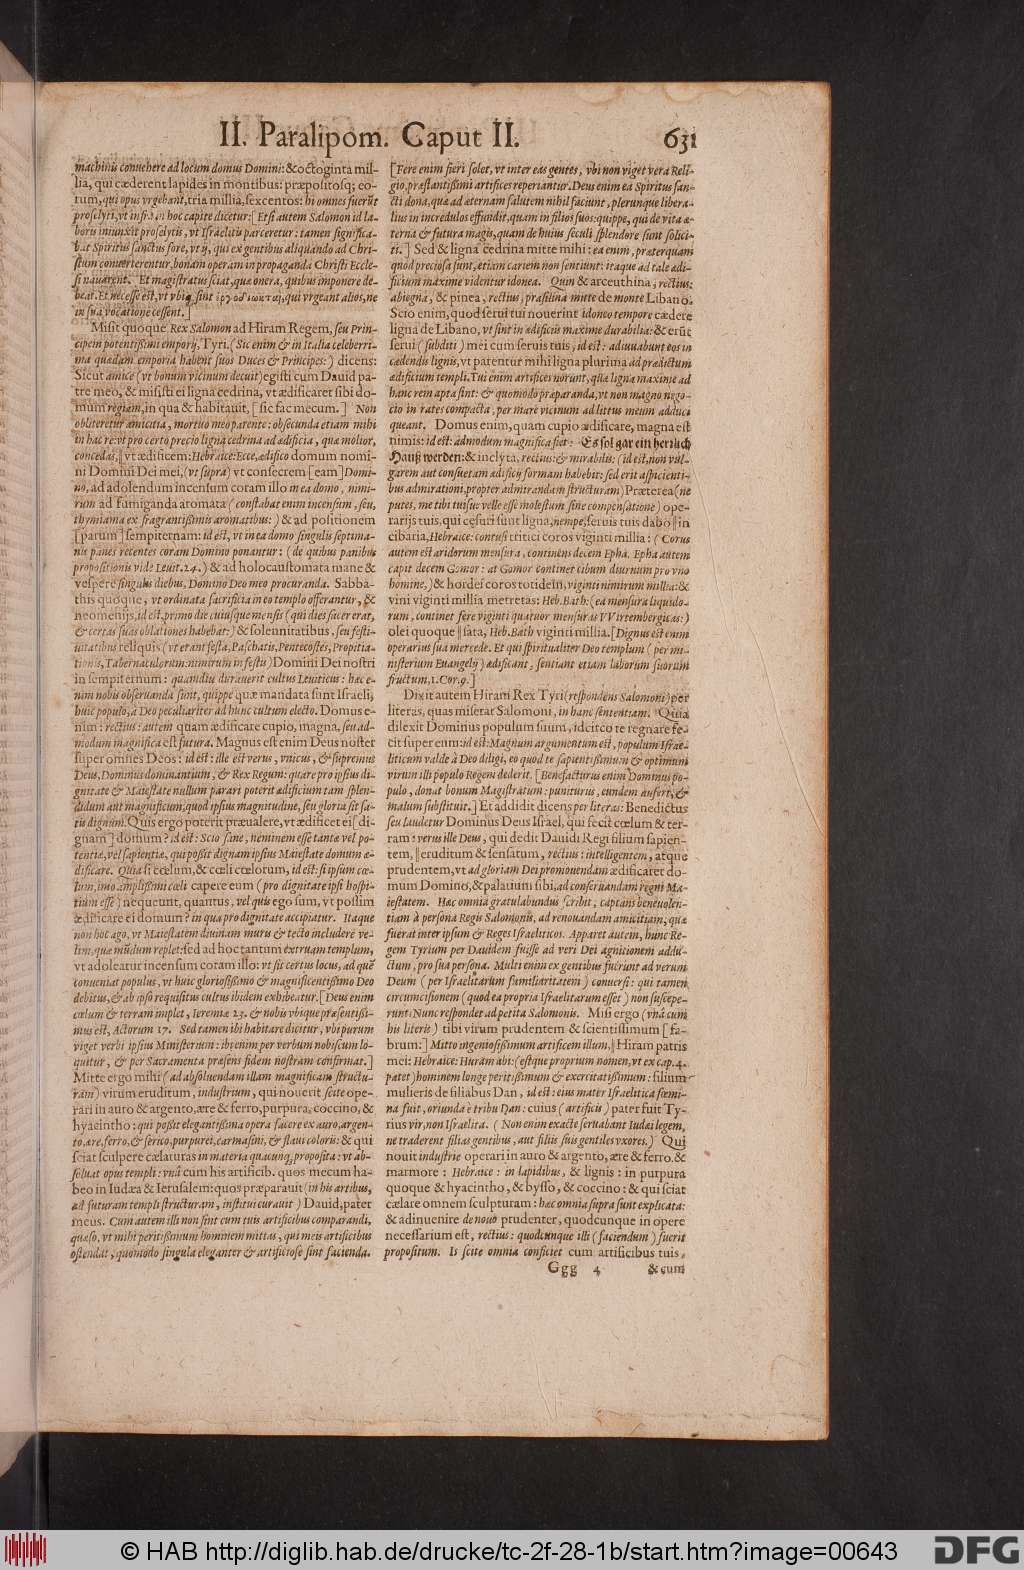 II. Paralipom. Caput II. 631
machinis conuehere ad locum domus Domini: & octoginta mil-
lia, qui cæderent lapides in montibus: præpositosq; eo-
rum, qui opus vrgebant, tria millia, sexcentos: hi omnes fuerũt
proselyti, vt infrà in hoc capite dicetur: [Etsi autem Salomon id la-
boris iniunxit proselytis, vt Israelitis parceretur: tamen significa-
bat Spiritus sanctus fore, vt ij, qui ex gentibus aliquando ad Chri-
stum conuerterentur, bonam operam in propaganda Christi Eccle-
si nauarent. Et magistratus sciat, quæ onera, quibus imponere de-
beat. Et necesse est, vt vbiq; sint ἐργοδιώκται, qui vrgeant alios, ne
in sua vocatione cessent.]
Misit quoque Rex Salomon ad Hiram Regem, seu Prin-
cipem potentissimi emporij, Tyri. (Sic enim & in Italia celeberri-
ma quædam emporia habent suos Duces & Principes:) dicens:
Sicut amicè (vt bonum vicinum decuit) egisti cum Dauid pa-
tre meo, & misisti ei ligna cedrina, vt ædificaret sibi do-
mum regiam, in qua & habitauit, [sic fac mecum.] Non
obliteretur amicitia, mortuo meo parente: obsecunda etiam mihi
in hac re: vt pro certo precio ligna cedrina ad ædificia, quæ molior,
concedas, ‖ vt ædificem: Hebraicè: Ecce, ædifico domum nomi-
ni Domini Dei mei, (vt suprà) vt consecrem [eam] Domi-
no, ad adolendum incensum coram illo in ea domo, nimi-
rum ad fumiganda aromata (constabat enim incensum, seu,
thymiama ex fragrantissimis aromatibus:) & ad positionem
[panum] sempiternam: id est, vt in ea domo singulis septima-
nis panes recentes coram Domino ponantur: (de quibus panibus
propositionis vide Leuit. 24.) & ad holocaustomata mane &
vesperè singulis diebus, Domino Deo meo procuranda. Sabba-
this quoque, vt ordinata sacrificia in eo templo offerantur, &
neomenijs, id est, primo die cuiusque mensis (qui dies sacer erat,
& certas suas oblationes habebat:) & solennitatibus, seu festi-
uitatibus reliquis (vt erant festa, Paschatis, Pentecostes, Propitia-
tionis, Tabernaculorum: nimirum in festis) Domini Dei nostri
in sempiternum: quamdiu durauerit cultus Leuiticus: hæc e-
nim nobis obseruanda sunt, quippe quæ mandata sunt Israeli,
huic populo, à Deo peculiariter ad hunc cultum electo. Domus e-
nim: rectius: autem quam ædificare cupio, magna, seu ad-
modum magnifica est futura. Magnus est enim Deus noster
super omnes Deos: id est: ille est verus, vnicus, & supremus
Deus, Dominus dominantium, & Rex Regum: quare pro ipsius di-
gnitate & Maiestate nullum parari poterit ædificium tam splen-
didum aut magnificum, quod ipsius magnitudine, seu gloria sit sa-
tis dignum. Quis ergo poterit præualere, vt ædificet ei [di-
gnam] domum? id est: Scio sanè, neminem esse tantæ vel po-
tentiæ, vel sapientiæ, qui possit dignam ipsius Maiestate domum æ-
dificare. Quia si cœlum, & cœli cœlorum, id est: si ipsum cœ-
lum, imò amplissimi cœli capere eum (pro dignitate ipsi hospi-
tium esse) nequeunt, quantus, vel quis ego sum, vt possim
ædificare ei domum? in qua pro dignitate accipiatur. Itaque
non hoc ago, vt Maiestatem diuinam muro & tecto includere ve-
lim, quæ mũdum replet: sed ad hoc tantùm extruam templum,
vt adoleatur incensum coram illo: vt sit certus locus, ad quẽ
conueniat populus, vt huic gloriosissimo & magnificentissimo Deo
debitus, & ab ipso requisitus cultus ibidem exhibeatur. [Deus enim
cœlum & terram implet, Ieremiæ 23. & nobis vbique præsentissi-
mus est, Actorum 17. Sed tamen ibi habitare dicitur, vbi purum
viget verbi ipsius Ministerium: ibi enim per verbum nobiscum lo-
quitur, & per Sacramenta præsens fidem nostram confirmat.]
Mitte ergo mihi (ad absoluendam illam magnificam structu-
ram) virum eruditum, industrium, qui nouerit scitè ope-
rari in auro & argento, ære & ferro, purpura, coccino, &
hyacintho: qui possit elegantissima opera facere ex auro, argen-
to, ære, ferro, & serico, purpurei, carmasini, & flaui coloris: & qui
sciat sculpere cælaturas in materia quacunq; proposita: vt ab-
soluat opus templi: vnà cum his artificib. quos mecum ha-
beo in Iudæa & Ierusalem: quos præparauit (in his artibus,
ad futuram templi structuram, institui curauit) Dauid, pater
meus. Cùm autem illi non sint cum tuis artificibus comparandi,
quæso, vt mihi peritissimum hominem mittas, qui meis artificibus
ostendat, quomodo singula eleganter & artificiosè sint facienda.
[Ferè enim fieri solet, vt inter eas gentes, vbi non viget vera Reli-
gio, præstantissimi artifices reperiantur. Deus enim ea Spiritus san-
cti dona, quæ ad æternam salutem nihil faciunt, plerunque libera-
lius in incredulos effundit, quàm in filios suos: quippe, qui de vita æ-
terna & futura magis, quàm de huius seculi splendore sunt solici-
ti.] Sed & ligna cedrina mitte mihi: ea enim, præterquam
quòd preciosa sunt, etiam cariem non sentiunt: itaque ad tale ædi-
ficium maximè videntur idonea. Quin & arceuthina, rectius:
abiegna, & pinea, rectius: præsilina mitte de monte Libano.
Scio enim, quòd serui tui nouerint idoneo tempore cædere
ligna de Libano, vt sint in ædificiis maximè durabilia: & erũt
serui (subditi) mei cum seruis tuis, id est: adiuuabunt eos in
cædendis lignis, vt parentur mihi ligna plurima ad prædictum
ædificium templi. Tui enim artifices nôrunt, quæ ligna maximè ad
hanc rem apta sint: & quomodo præparanda, vt non magno nego-
cio in rates compacta, per mare vicinum ad littus meum adduci
queant. Domus enim, quam cupio ædificare, magna est
nimis: id est: admodum magnifica fiet: Es sol gar ein herrlich
Hauß werden: & inclyta, rectius: & mirabilis: (id est, non vul-
garem aut consuetam ædificij formam habebit: sed erit aspicienti-
bus admirationi, propter admirandam structuram) Præterea (ne
putes, me tibi tuisq; velle esse molestum sine compensatione) ope-
rarijs tuis, qui cęsuri sunt ligna, nempe, seruis tuis dabo ‖ in
cibaria, Hebraicè: contusi tritici coros viginti millia: (Corus
autem est aridorum mensura, continens decem Epha. Epha autem
capit decem Gomor: at Gomor continet cibum diurnum pro vno
homine,) & hordei coros totidem, viginti nimirum millia: &
vini viginti millia metretas: Heb. Bath: (ea mensura liquido-
rum, continet ferè viginti quatuor mensuras VVirtembergicas:)
olei quoque ‖ sata, Heb. Bath viginti millia. [Dignus est enim
operarius sua mercede. Et qui spiritualiter Deo templum (per mi-
nisterium Euangelij) ædificant, sentiant etiam laborum suorum
fructum, 1. Cor. 9.]
Dixit autem Hiram Rex Tyri (respondens Salomoni) per
literas, quas miserat Salomoni, in hanc sententiam. Quia
dilexit Dominus populum suum, idcirco te regnare fe-
cit super eum: id est: Magnum argumentum est, populum Israe-
liticum valdè à Deo deligi, eo quòd te sapientissimum & optimum
virum illi populo Regem dederit. [Benefacturus enim Dominus po-
pulo, donat bonum Magistratum: puniturus, eundem aufert, &
malum substituit.] Et addidit dicens per literas: Benedictus
seu laudetur Dominus Deus Israel, qui fecit cœlum & ter-
ram: verus ille Deus, qui dedit Dauidi Regi filium sapien-
tem, ‖ eruditum & sensatum, rectius: intelligentem, atque
prudentem, vt ad gloriam Dei promouendam ædificaret do-
mum Domino, & palatium sibi, ad conseruandam regni Ma-
iestatem. Hæc omnia gratulabundus scribit, captans beneuolen-
tiam à persona Regis Salomonis, ad renouandam amicitiam, quæ
fuerat inter ipsum & Reges Israeliticos. Apparet autem, hunc Re-
gem Tyrium per Dauidem fuisse ad veri Dei agnitionem addu-
ctum, pro sua persona. Multi enim ex gentibus fuerunt ad verum
Deum (per Israelitarum familiaritatem) conuersi: qui tamen
circumcisionem (quod ea propria Israelitarum esset) non suscepe-
runt: Nunc respondet ad petita Salomonis. Misi ergo (vnà cum
his literis) tibi virum prudentem & scientissimum [fa-
brum:] Mitto ingeniosissimum artificem illum, ‖ Hiram patris
mei: Hebraicè: Huram abi: (estque proprium nomen, vt ex cap. 4.
patet) hominem longè peritissimum & exercitatissimum: filium
mulieris de filiabus Dan, id est: eius mater Israelitica fœmi-
na fuit, oriunda è tribu Dan: cuius (artificis) pater fuit Ty-
rius vir, non Israelita. (Non enim exactè seruabant Iudæi legem,
ne traderent filias gentibus, aut filiis suis gentiles vxores.) Qui
nouit industriè operari in auro & argento, ære & ferro, &
marmore: Hebraicè: in lapidibus, & lignis: in purpura
quoque & hyacintho, & bysso, & coccino: & qui sciat
cælare omnem sculpturam: hæc omnia suprà sunt explicata:
& adinuenire de nouo prudenter, quodcunque in opere
necessarium est, rectius: quodcunque illi (faciendum) fuerit
propositum. Is scitè omnia conficiet cum artificibus tuis,
Ggg 4 & cum
© HAB http://diglib.hab.de/drucke/tc-2f-28-1b/start.htm?image=00643
DFG